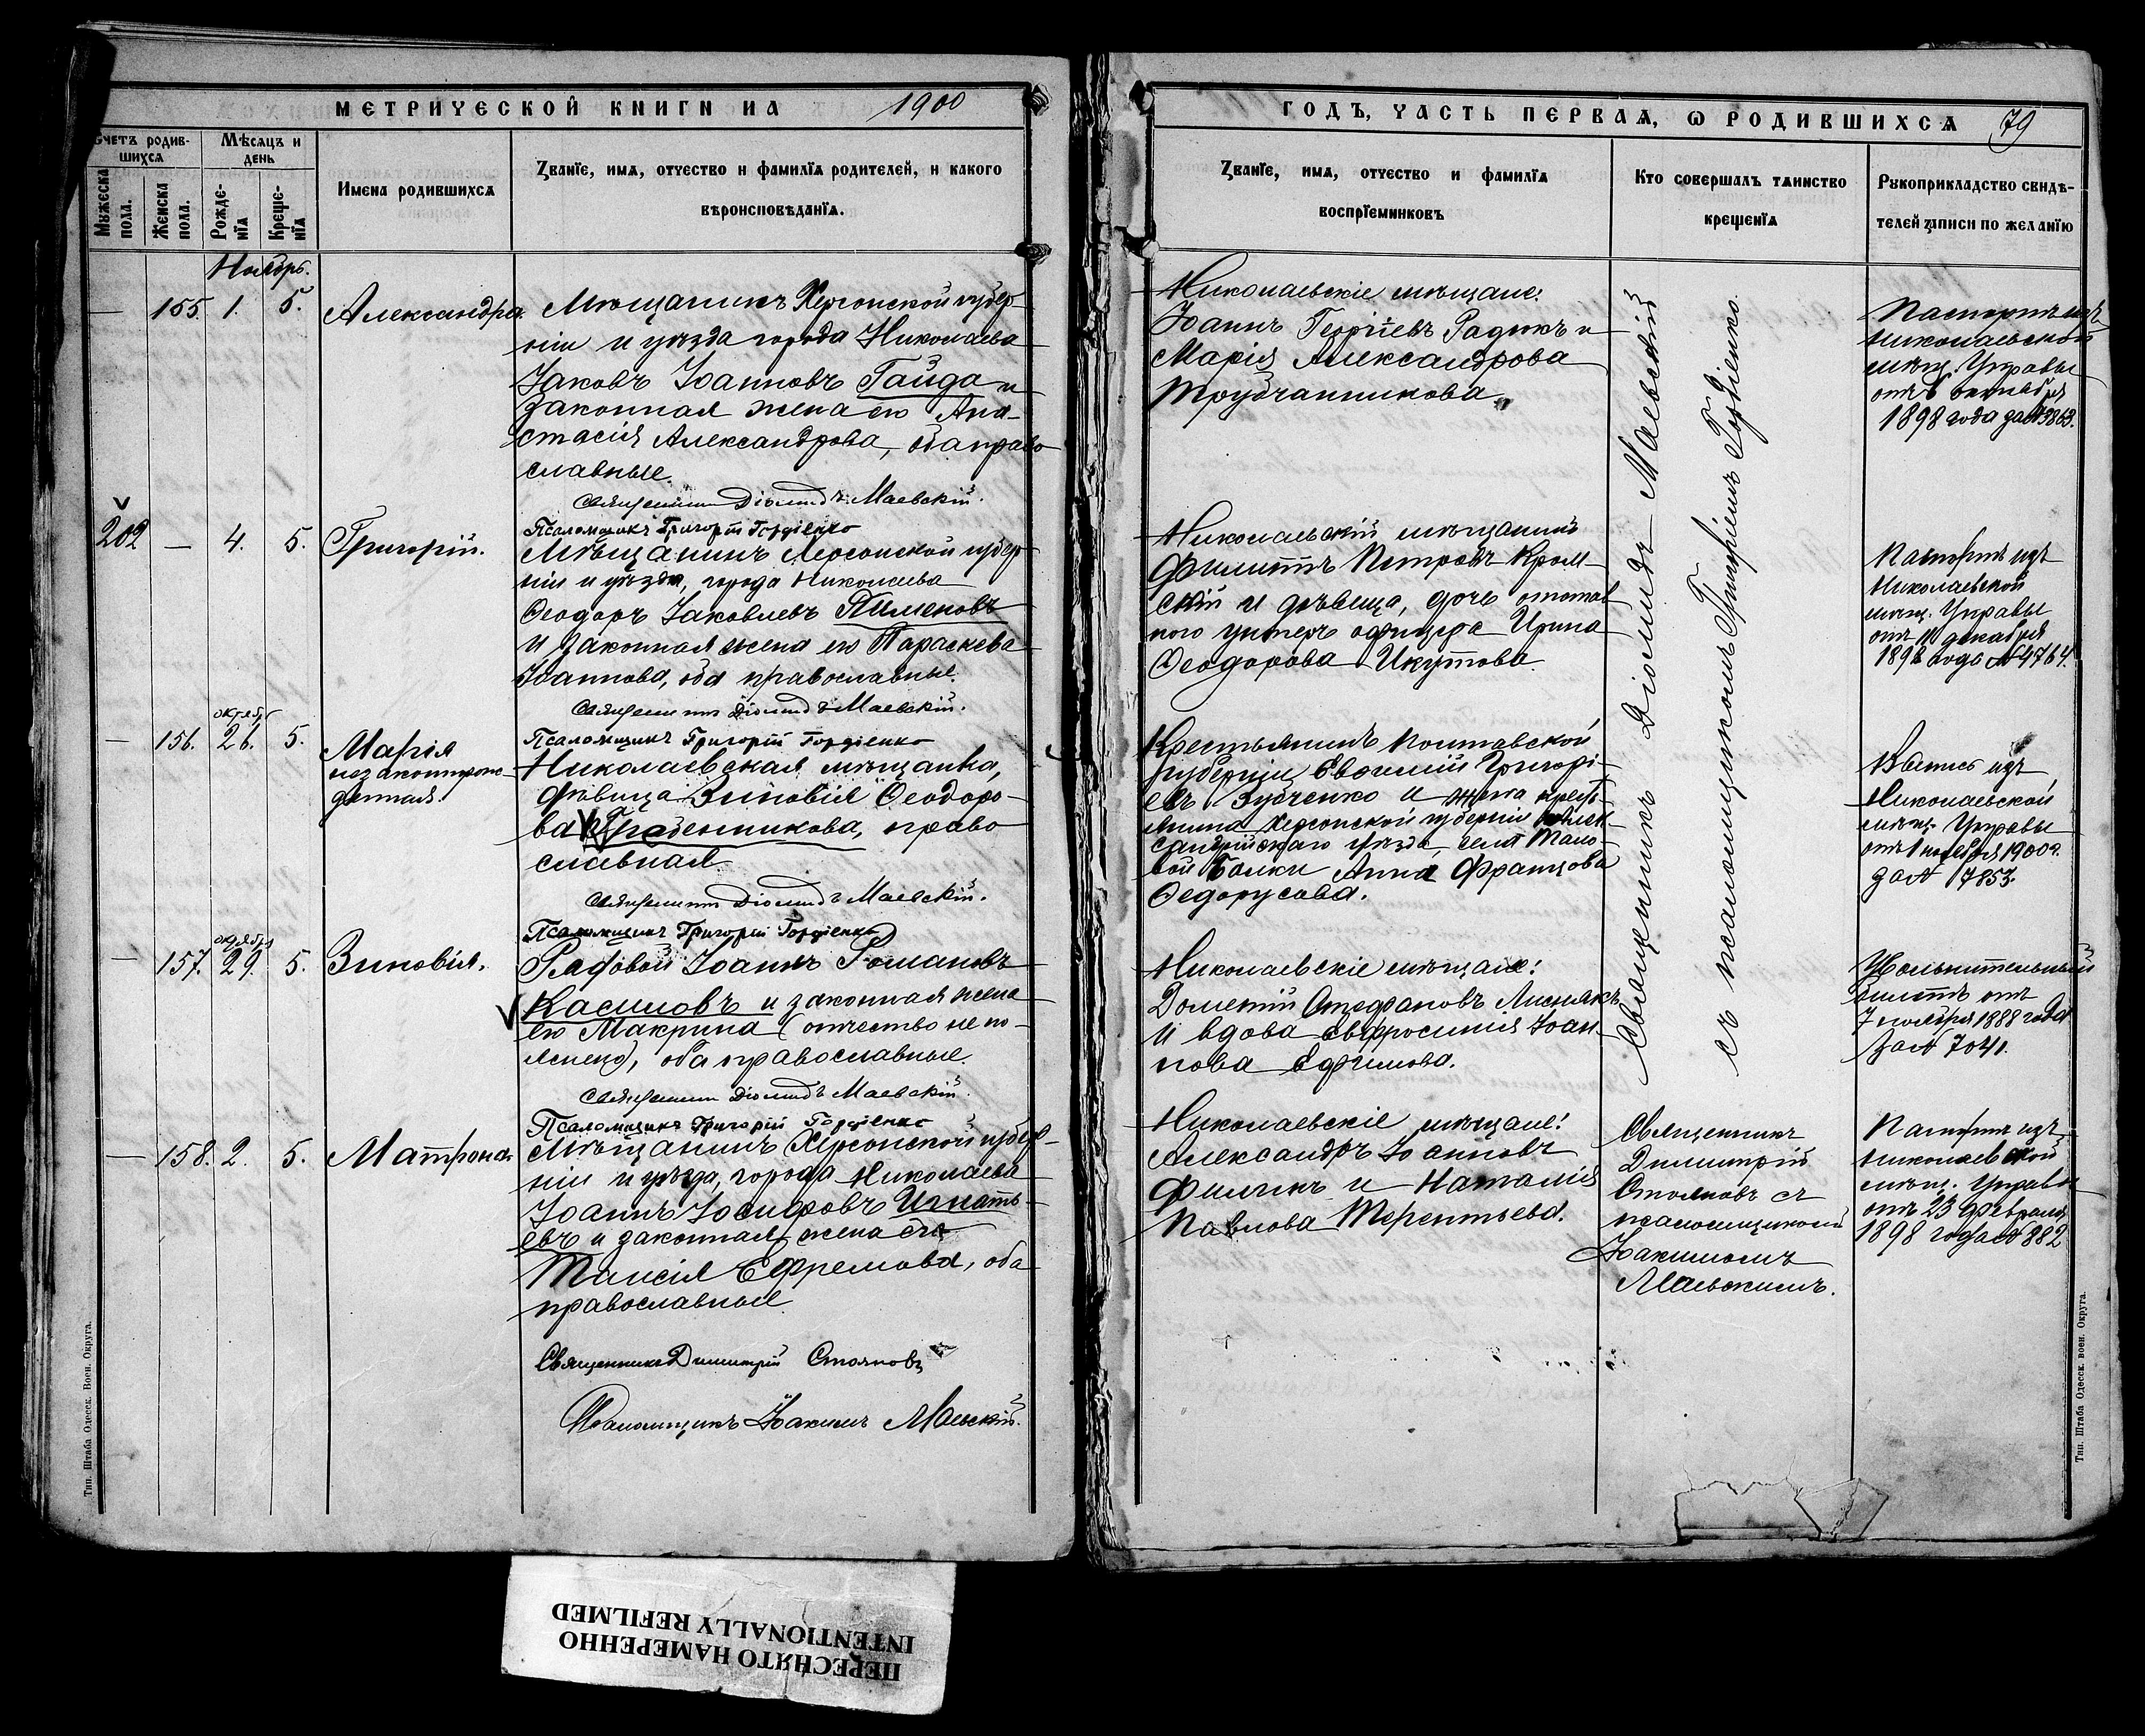 МЕТРИЧЕСКОЙ КНИГИ НА 1900
Счетъ родив-
шихся
Мѣсяцъ и
день
Мужеска
пола.
Женска
пола.
Рожде-
нія
Креще-
нія
Имена родившихся
Званіе, имя, отчество и фамилія родителей, и какого
вѣроисповѣданія.
Ноябрь.
— 155. 1. 5. Александра.
Мѣщанинъ Херсонской губер-
ніи и уѣзда города Николаева
Іаковъ Іоанновъ Гайда и
законная жена его Ана-
стасія Александрова, оба право-
славные.
Священникъ Діомидъ Маевскій.
Псаломщикъ Григорій Гордіенко
202 — 4. 5. Григорій.
Мѣщанинъ Херсонской губер-
ніи и уѣзда, города Николаева
Ѳеодоръ Іаковлевъ Пименовъ
и законная жена его Параскева
Іоаннова, оба православные.
Священникъ Діомидъ Маевскій.
Псаломщикъ Григорій Гордіенко
октября
— 156. 26. 5. Марія
незаконнорож-
денная.
Николаевская мѣщанка,
дѣвица Зиновія Ѳеодоро-
ва Гребенникова, право-
славная.
Священникъ Діомидъ Маевскій.
Псаломщикъ Григорій Гордіенко
октября
— 157. 29. 5. Зиновія.
Рядовой Іоаннъ Романовъ
Касимовъ и законная жена
его Макрина (отчество не по-
яснено), оба православные.
Священникъ Діомидъ Маевскій.
Псаломщикъ Григорій Гордіенко
— 158. 2. 5. Матрона.
Мѣщанинъ Херсонской губер-
ніи и уѣзда, города Николаева
Іоаннъ Іосифовъ Игнать-
евъ и законная жена его
Таисія Ефремова, оба
православные
Священникъ Димитрій Стояновъ
Псаломщикъ Іоакимъ Маевскій.
Тип. Штаба Одесск. Воен. Округа.
ГОДЪ, ЧАСТЬ ПЕРВАЯ, Ѡ РОДИВШИХСЯ 79
Званіе, имя, отчество и фамилія
воспріемниковъ
Кто совершалъ таинство
крещенія
Рукоприкладство свидѣ-
телей записи по желанію
Николаевскіе мѣщане:
Іоаннъ Георгіевъ Радюкъ и
Марія Александрова
Трубчанникова.
Николаевскій мѣщанинъ
Филиппъ Петровъ Кром-
скій и дѣвица, дочь отстав-
ного унтеръ офицера Ирина
Ѳеодорова Икутова.
Крестьянинъ Полтавской
губерніи Евѳимій Григорі-
евъ Зубченко и жена кресть-
янина Херсонской губерніи Алек-
сандрійскаго уѣзда, села
вой Балки Анна Францова
Ѳедорусова.
Николаевскіе мѣщане:
Дометій Стефановъ Лиснякъ
и вдова Евфросинія Іоан-
нова Ефимова.
Николаевскіе мѣщане:
Александръ Іоанновъ
Филинъ и Наталія
Павлова Терентьева.
Священникъ Діомидъ Маевскій
съ псаломщикомъ Григоріемъ Гордіенко.
Священникъ
Димитрій
Стояновъ съ
псаломщикомъ
Іоакимомъ
Маевскимъ.
Паспортъ изъ
Николаевской
мѣщ. Управы
отъ 6 октября
1898 года за № 3863.
Паспортъ изъ
Николаевской
мѣщ. Управы
отъ 11 декабря
1898 года № 4764.
Запись изъ
Николаевской
мѣщ. Управы
отъ 1 ноября 1900 г.
за № 17853.
Увольнительный
билетъ отъ
7 ноября 1888 года
за № 7041.
Паспортъ изъ
Николаевской
мѣщ. Управы
отъ 23 февраля
1898 года № 882
Тип. Штаба Одесск. воен. Округа.
ПЕРЕСНЯТО НАМЕРЕННО
INTENTIONALLY REFILMED